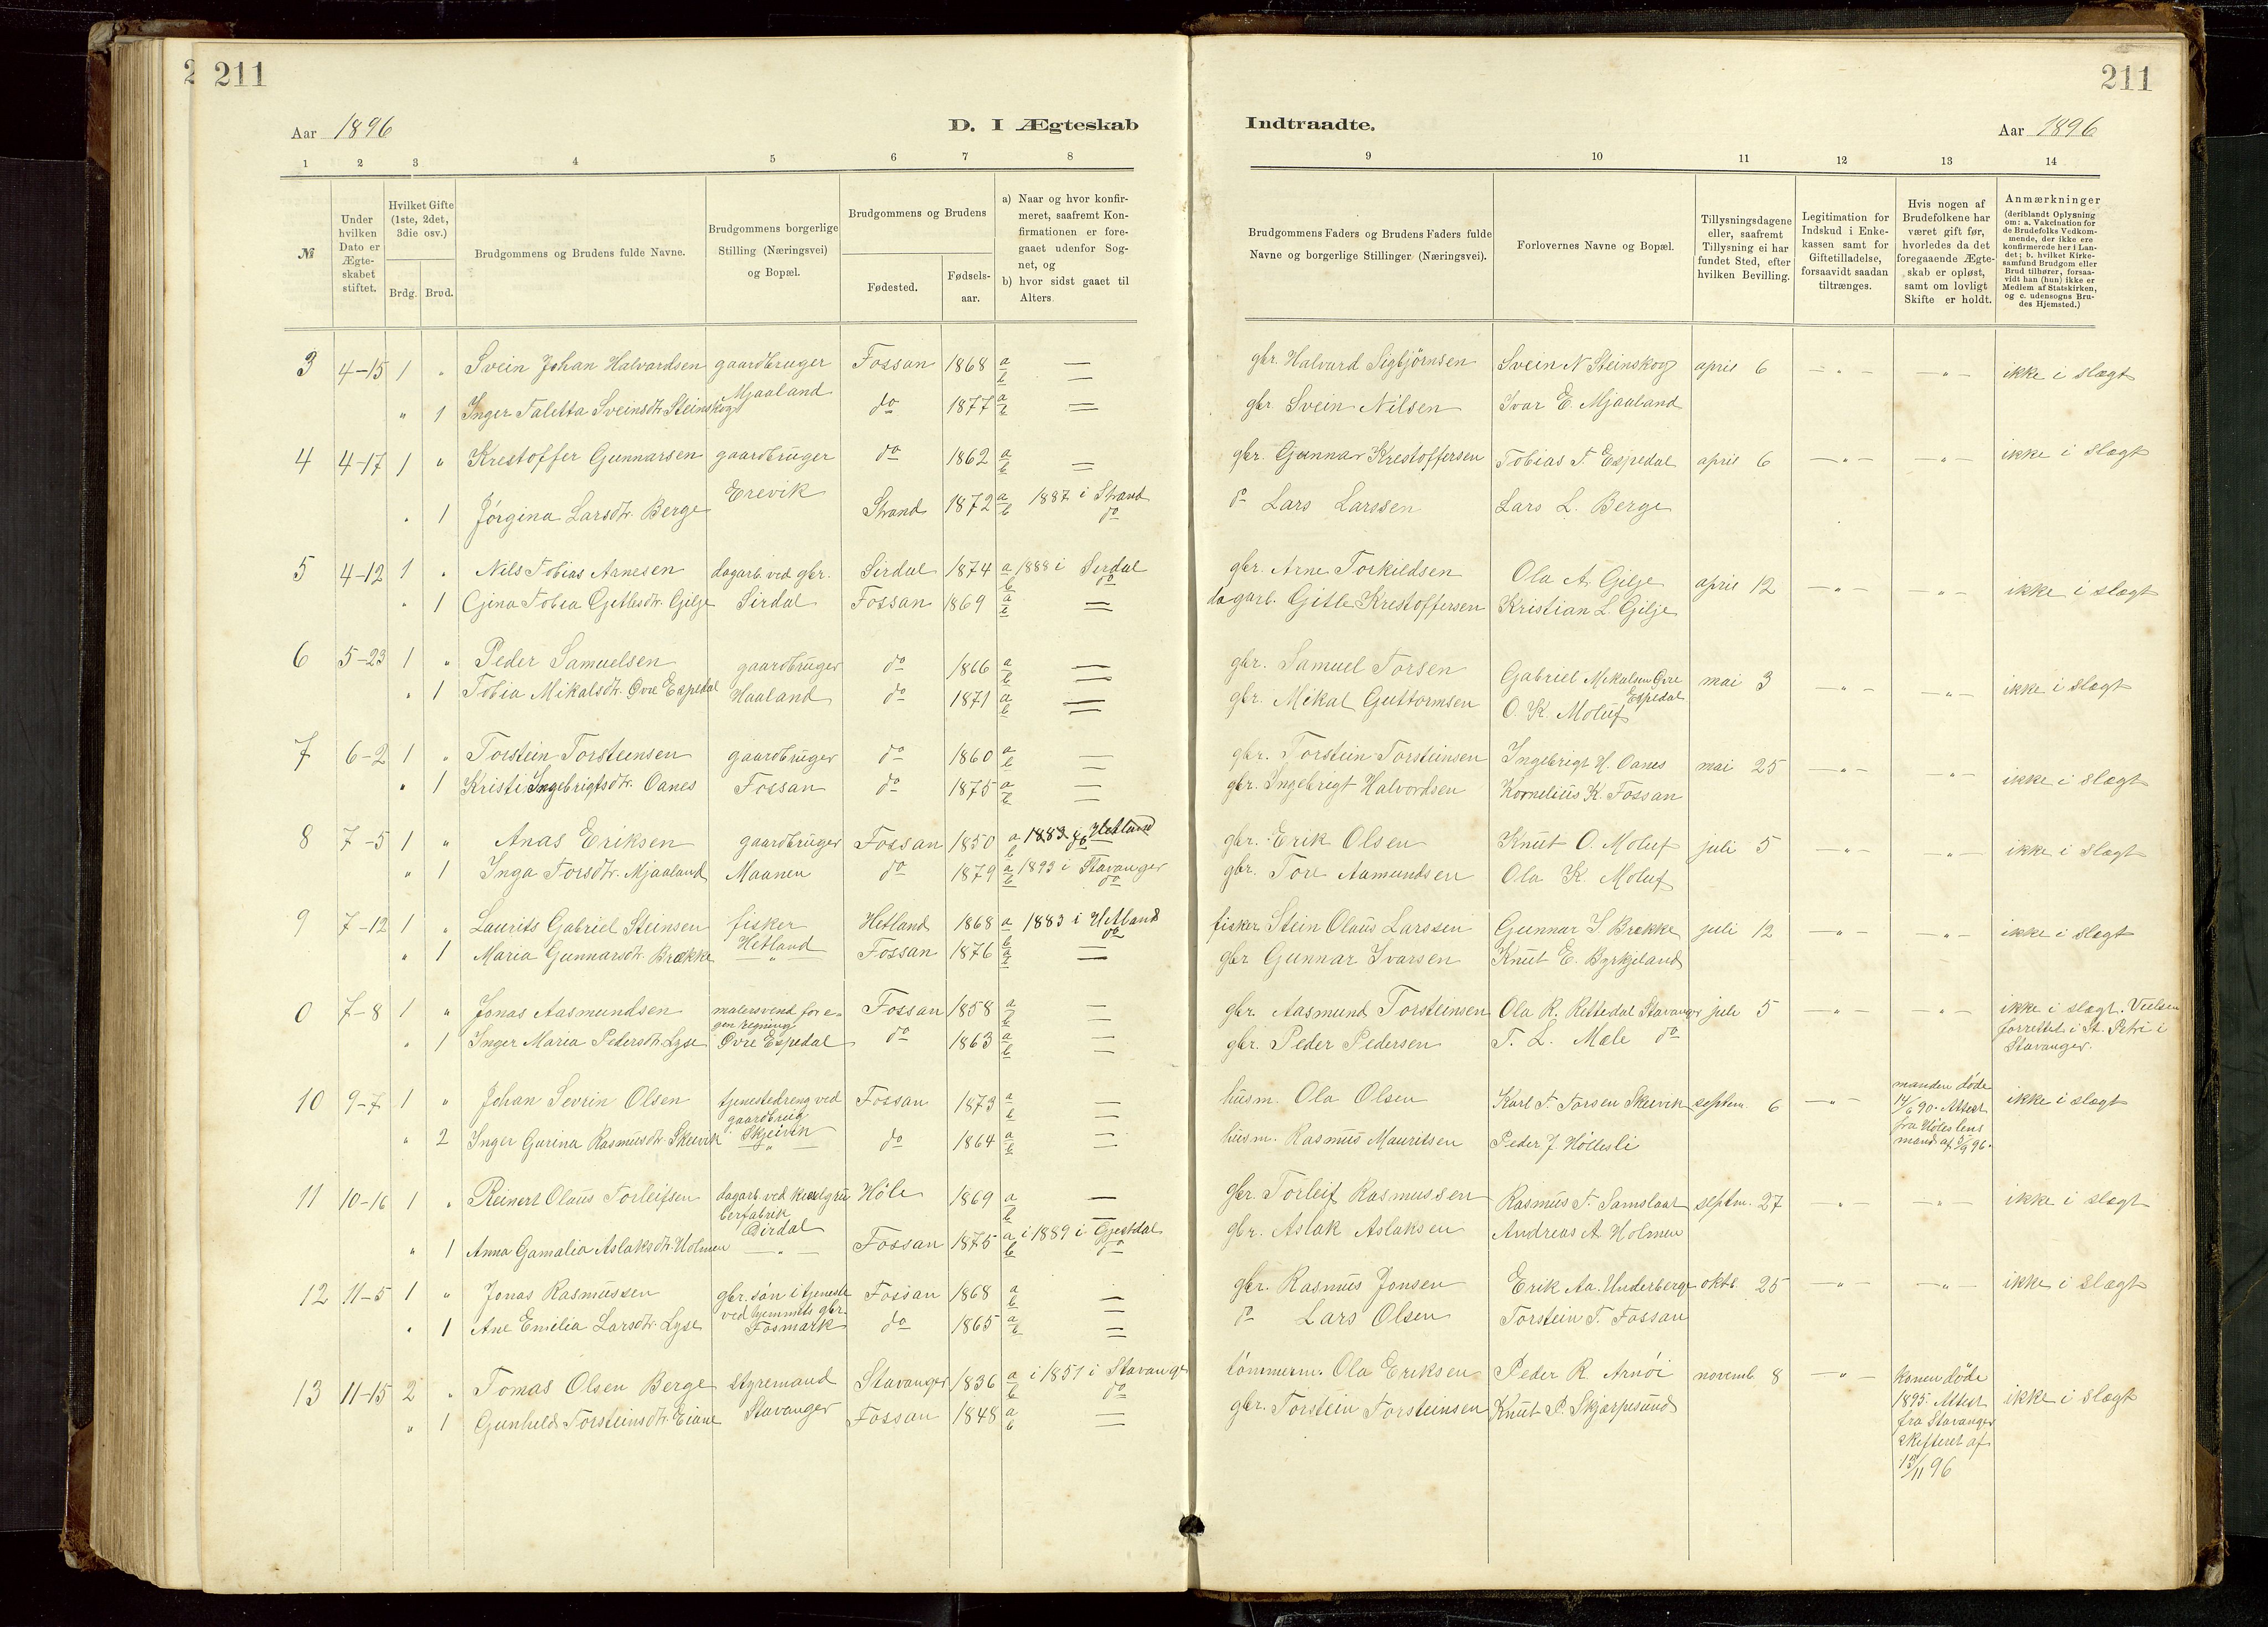 211
211
Aar 1896
D. I Ægteskab
Indtraadte.
Aar 1896
1 2 3 4 5 6 7 8 9 10 11 12 13 14
№
Under hvilken Dato er Ægteskabet stiftet.
Hvilket Gifte (1ste, 2det, 3die osv.)
Brdg. Brud.
Brudgommens og Brudens fulde Navne.
Brudgommens borgerlige Stilling (Næringsvei) og Bopæl.
Brudgommens og Brudens
Fødested.
Fødsels-aar.
a) Naar og hvor konfirmeret, saafremt Konfirmationen er foregaaet udenfor Sognet, og
b) hvor sidst gaaet til Alters.
Brudgommens Faders og Brudens Faders fulde Navne og borgerlige Stillinger (Næringsvei).
Forlovernes Navne og Bopæl.
Tillysningsdagene eller, saafremt Tillysning ei har fundet Sted, efter hvilken Bevilling.
Legitimation for Indskud i Enkekassen samt for Giftetilladelse, forsaavidt saadan tiltrænges.
Hvis nogen af Brudefolkene har været gift før, hvorledes da det foregaaende Ægteskab er opløst, samt om lovligt Skifte er holdt.
Anmærkninger (deriblandt Oplysning om: a. Vakcination for de Brudefolks Vedkommende, der ikke ere konfirmerede her i Landet; b. hvilket Kirkesamfund Brudgom eller Brud tilhører, forsaavidt han (hun) ikke er Medlem af Statskirken, og c. udensogns Brudes Hjemsted.)
3 4-15 1 " Svein Johan Halvardsen gaardbruger Fossan 1868 a — b — gbr. Halvard Sigbjørnsen Svein N Steinskog april 6 —"— —"— ikke i slægt
" 1 Inger Taletta Sveinsdtr. Steinskog Mjaaland do 1877 a b — gbr Svein Nilsen Ivar E. Mjaaland
4 4-17 1 " Krestoffer Gunnarsen gaardbruger do 1862 a b — gbr. Gunnar Krestoffersen Tobias T. Espedal april 6 —"— —"— ikke i slægt
" 1 Jørgina Larsdtr. Berge Erevik Strand 1872 a 1887 i Strand b do do Lars Larssen Lars L. Berge
5 4-12 1 " Nils Tobias Arnesen dagarb. ved gbr. Sirdal 1874 a 1888 i Sirdal b do gbr. Arne Torkildsen Ola A. Gilje april 12 —"— —"— ikke i slægt
" 1 Gjina Tobia Gitlesdtr. Gilje Sirdal Fossan 1869 a b — dagarb. Gitle Krestoffersen Kristian L. Gilje
6 5-23 1 " Peder Samuelsen gaardbruger do 1866 a b — gbr. Samuel Torsen Gabriel Mikalsen Øvre Espedal mai 3 —"— —"— ikke i slægt
" 1 Tobia Mikalsdtr. Øvre Espedal Haaland do 1871 a b — gbr. Mikal Guttormsen O. K. Moluf
7 6-2 1 " Torstein Torsteinsen gaardbruger do 1860 a b — gbr. Torstein Torsteinsen Ingebrigt H. Oanes mai 25 —"— —"— ikke i slægt
" 1 Kristi Ingebrigtsdtr. Oanes Fossan do 1875 a b — gbr. Ingebrigt Halvordsen Kornelius K. Fossan
8 7-5 1 " Anas Eriksen gaardbruger Fossan 1850 a 1883 i Hetland b do gbr. Erik Olsen Knut O. Moluf juli 5 —"— —"— ikke i slægt
" 1 Inga Torsdtr. Mjaaland Maanen do 1879 a 1893 i Stavanger b do gbr. Tore Aamundsen Ola K. Moluf
9 7-12 1 " Laurits Gabriel Steinsen fisker Hetland 1868 a 1883 i Hetland b do fisker Stein Olaus Larssen Gunnar I Brekke juli 12 —"— —"— ikke i slægt
" 1 Maria Gunnarsdtr. Brække Hetland —"— Fossan 1876 a b — gbr Gunnar Ivarsen Knut E. Byrkjeland
0 7-8 1 " Jonas Aasmundsen malersvend for egen regning Fossan 1858 a b — gbr. Aasmund Torsteinsen Ola R. Rettedal Stavanger juli 5 —"— —"— ikke i slægt. Vielsen forrettet i St. Petri i Stavanger.
" 1 Inger Maria Pedersdtr. Lyse Øvre Espedal do 1863 a b — gbr. Peder Pedersen T. L. Mæle do
10 9-7 1 " Johan Sevrin Olsen tjenestedreng ved gaardbrug Fossan 1873 a b — husm. Ola Olsen Karl T. Torsen Skeivik septem. 6 —"— manden døde 14/6 90. Attest fra Høles lensmand af 5/9 96. ikke i slægt
" 2 Inger Gurina Rasmusdtr. Skeivik Skjeivik —"— do 1864 a b — husm. Rasmus Mauritsen Peder J. Høllesli
11 10-16 1 " Reinert Olaus Torleifsen dagarb. ved berfabrik Høle 1869 a b — gbr. Torleif Rasmussen Rasmus T. Samslaat septm. 27 —"— —"— ikke i slægt
" 1 Anna Gamalia Aslaksdtr. Holmen Dirdal —"— Fossan 1875 a i 1889 i Gjestdal b do gbr. Aslak Aslaksen Andreas A. Holmen
12 11-5 1 " Jonas Rasmussen gbr. søn i tjeneste ved hjemmets gbr. Fossan 1868 a b — gbr. Rasmus Jonsen Erik Aa. Underberge oktb. 25 —"— —"— ikke i slægt
" 1 Ane Emilia Larsdtr. Lyse Fosmark do 1865 a b — do Lars Olsen Torstein T. Fossan
13 11-15 2 " Tomas Olsen Berge styremand Stavanger 1836 a i 1851 i Stavanger b do tømmerm. Ola Eriksen Peder R. Arnøi novemb. 8 —"— Konen døde 1895. Attest fra Stavanger skifteret af 13/11 96 ikke i slægt
" 1 Gunhild Torsteinsdtr. Eiane Stavanger Fossan 1848 a b — gbr. Torstein Torsteinsen Knut P. Skjørpesund